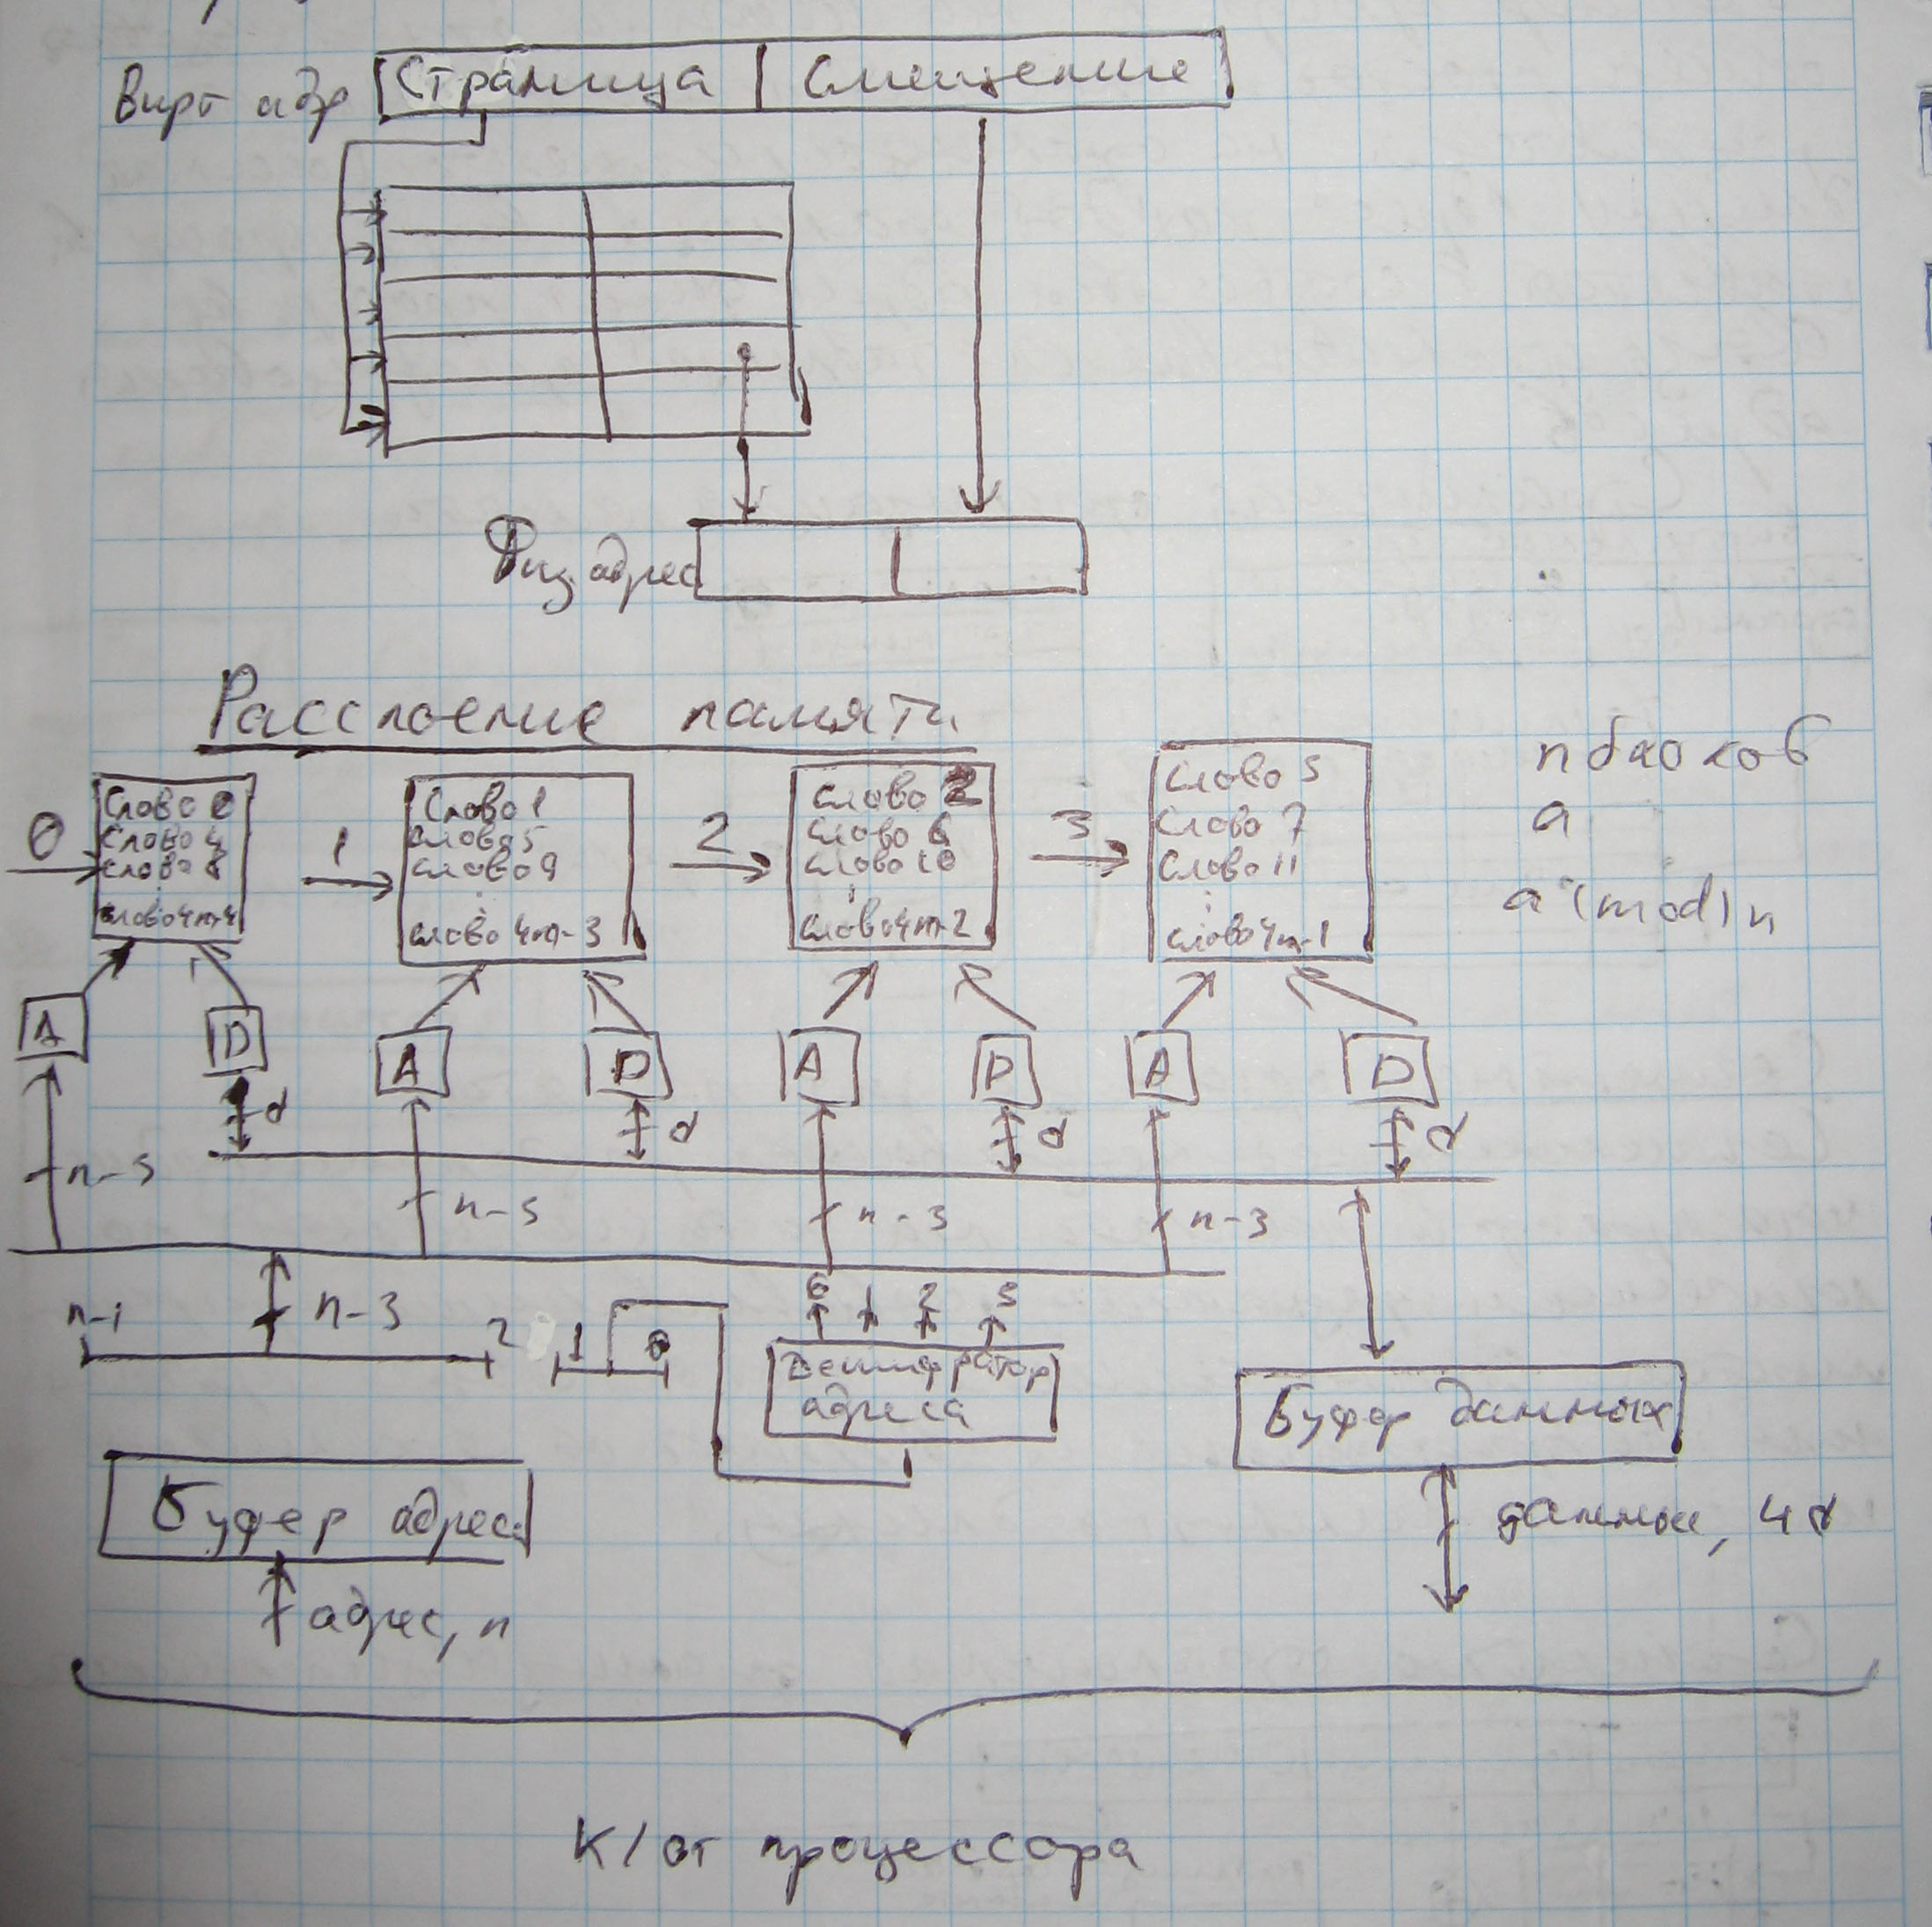 Вирт адр Страница Смещение
Физ адрес
Расслоение памяти
n блоков
a
a (mod) n
0
Слово 0
Слово 4
Слово 8
Слово 4m-4
1
Слово 1
Слово 5
Слово 9
Слово 4m-3
2
Слово 2
Слово 6
Слово 10
Слово 4m-2
3
Слово 3
Слово 7
Слово 11
Слово 4m-1
A D A D A D A D
d d d d
n-3 n-3 n-3 n-3
n-1 n-3 2 1 0
0 1 2 3
Дешифратор
адреса
Буфер данных
Буфер адреса
данные, 4d
адрес, n
К/от процессора